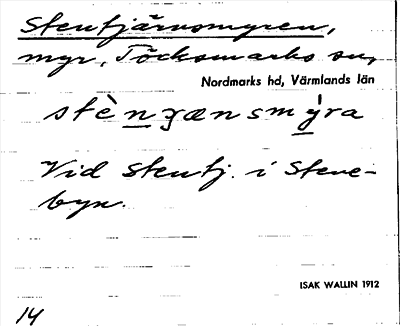 Stentjärnsmyren,
myr, Töcksmarks sn,
Nordmarks hd, Värmlands län
stènʒænsmýra
Vid Stentj. i Stene-
byn.
ISAK WALLIN 1912
14